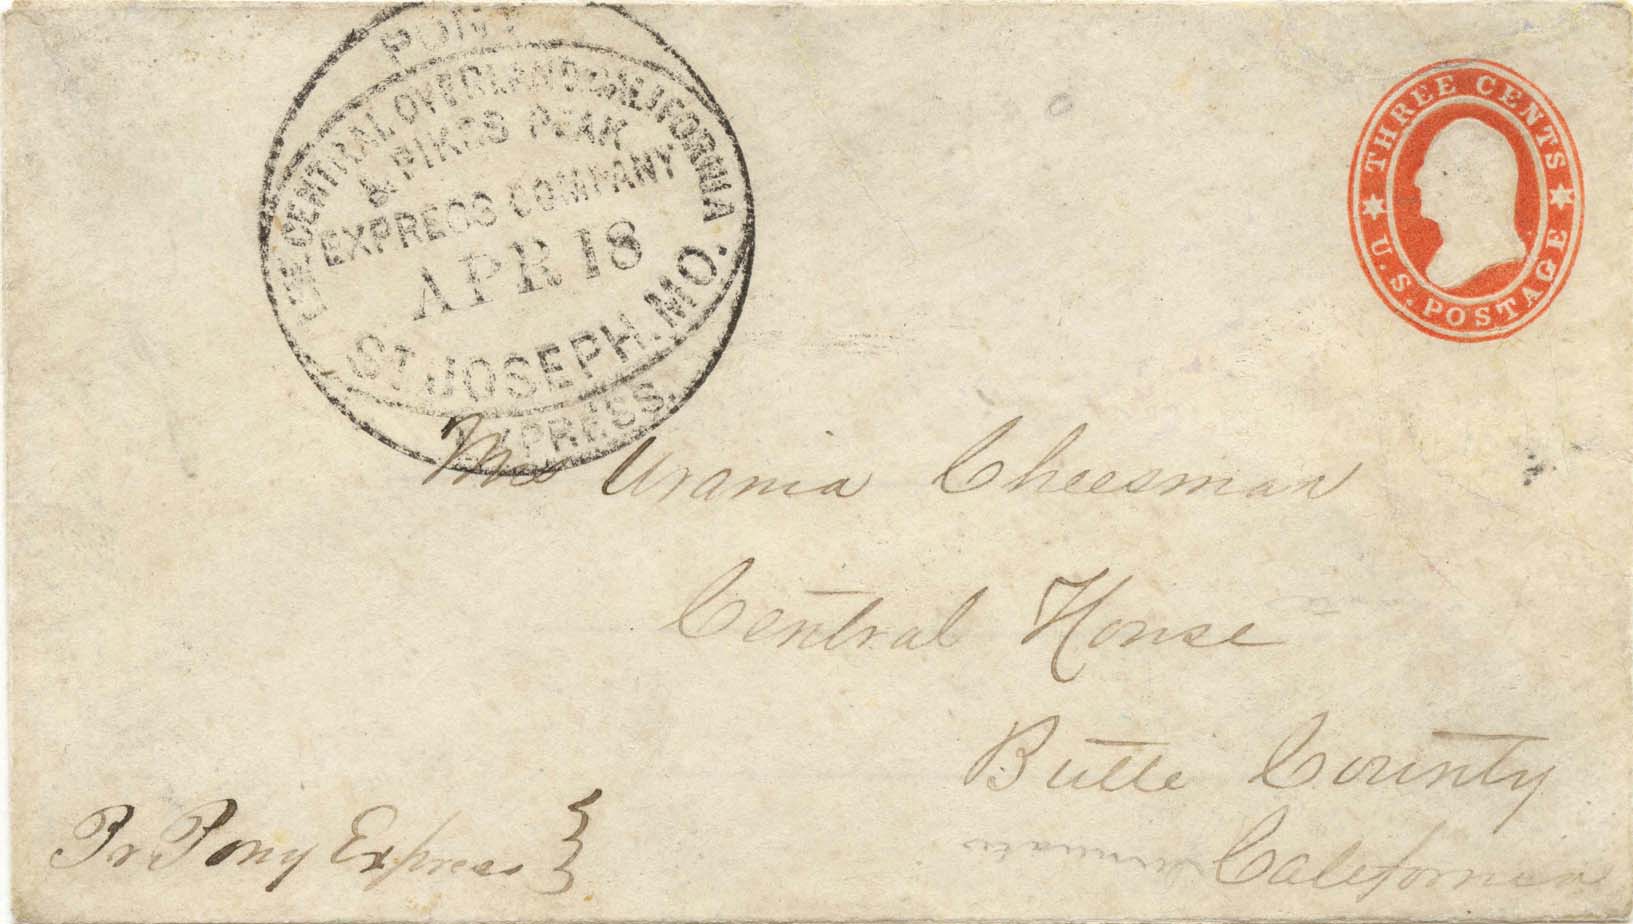 PONY
CENTRAL OVERLAND CALIFORNIA
& PIKES PEAK
EXPRESS COMPANY
APR 18
ST. JOSEPH. MO.
EXPRESS.
THREE CENTS
U.S. POSTAGE
Urania Cheesman
Central House
Butte County
California
Pr Pony Express